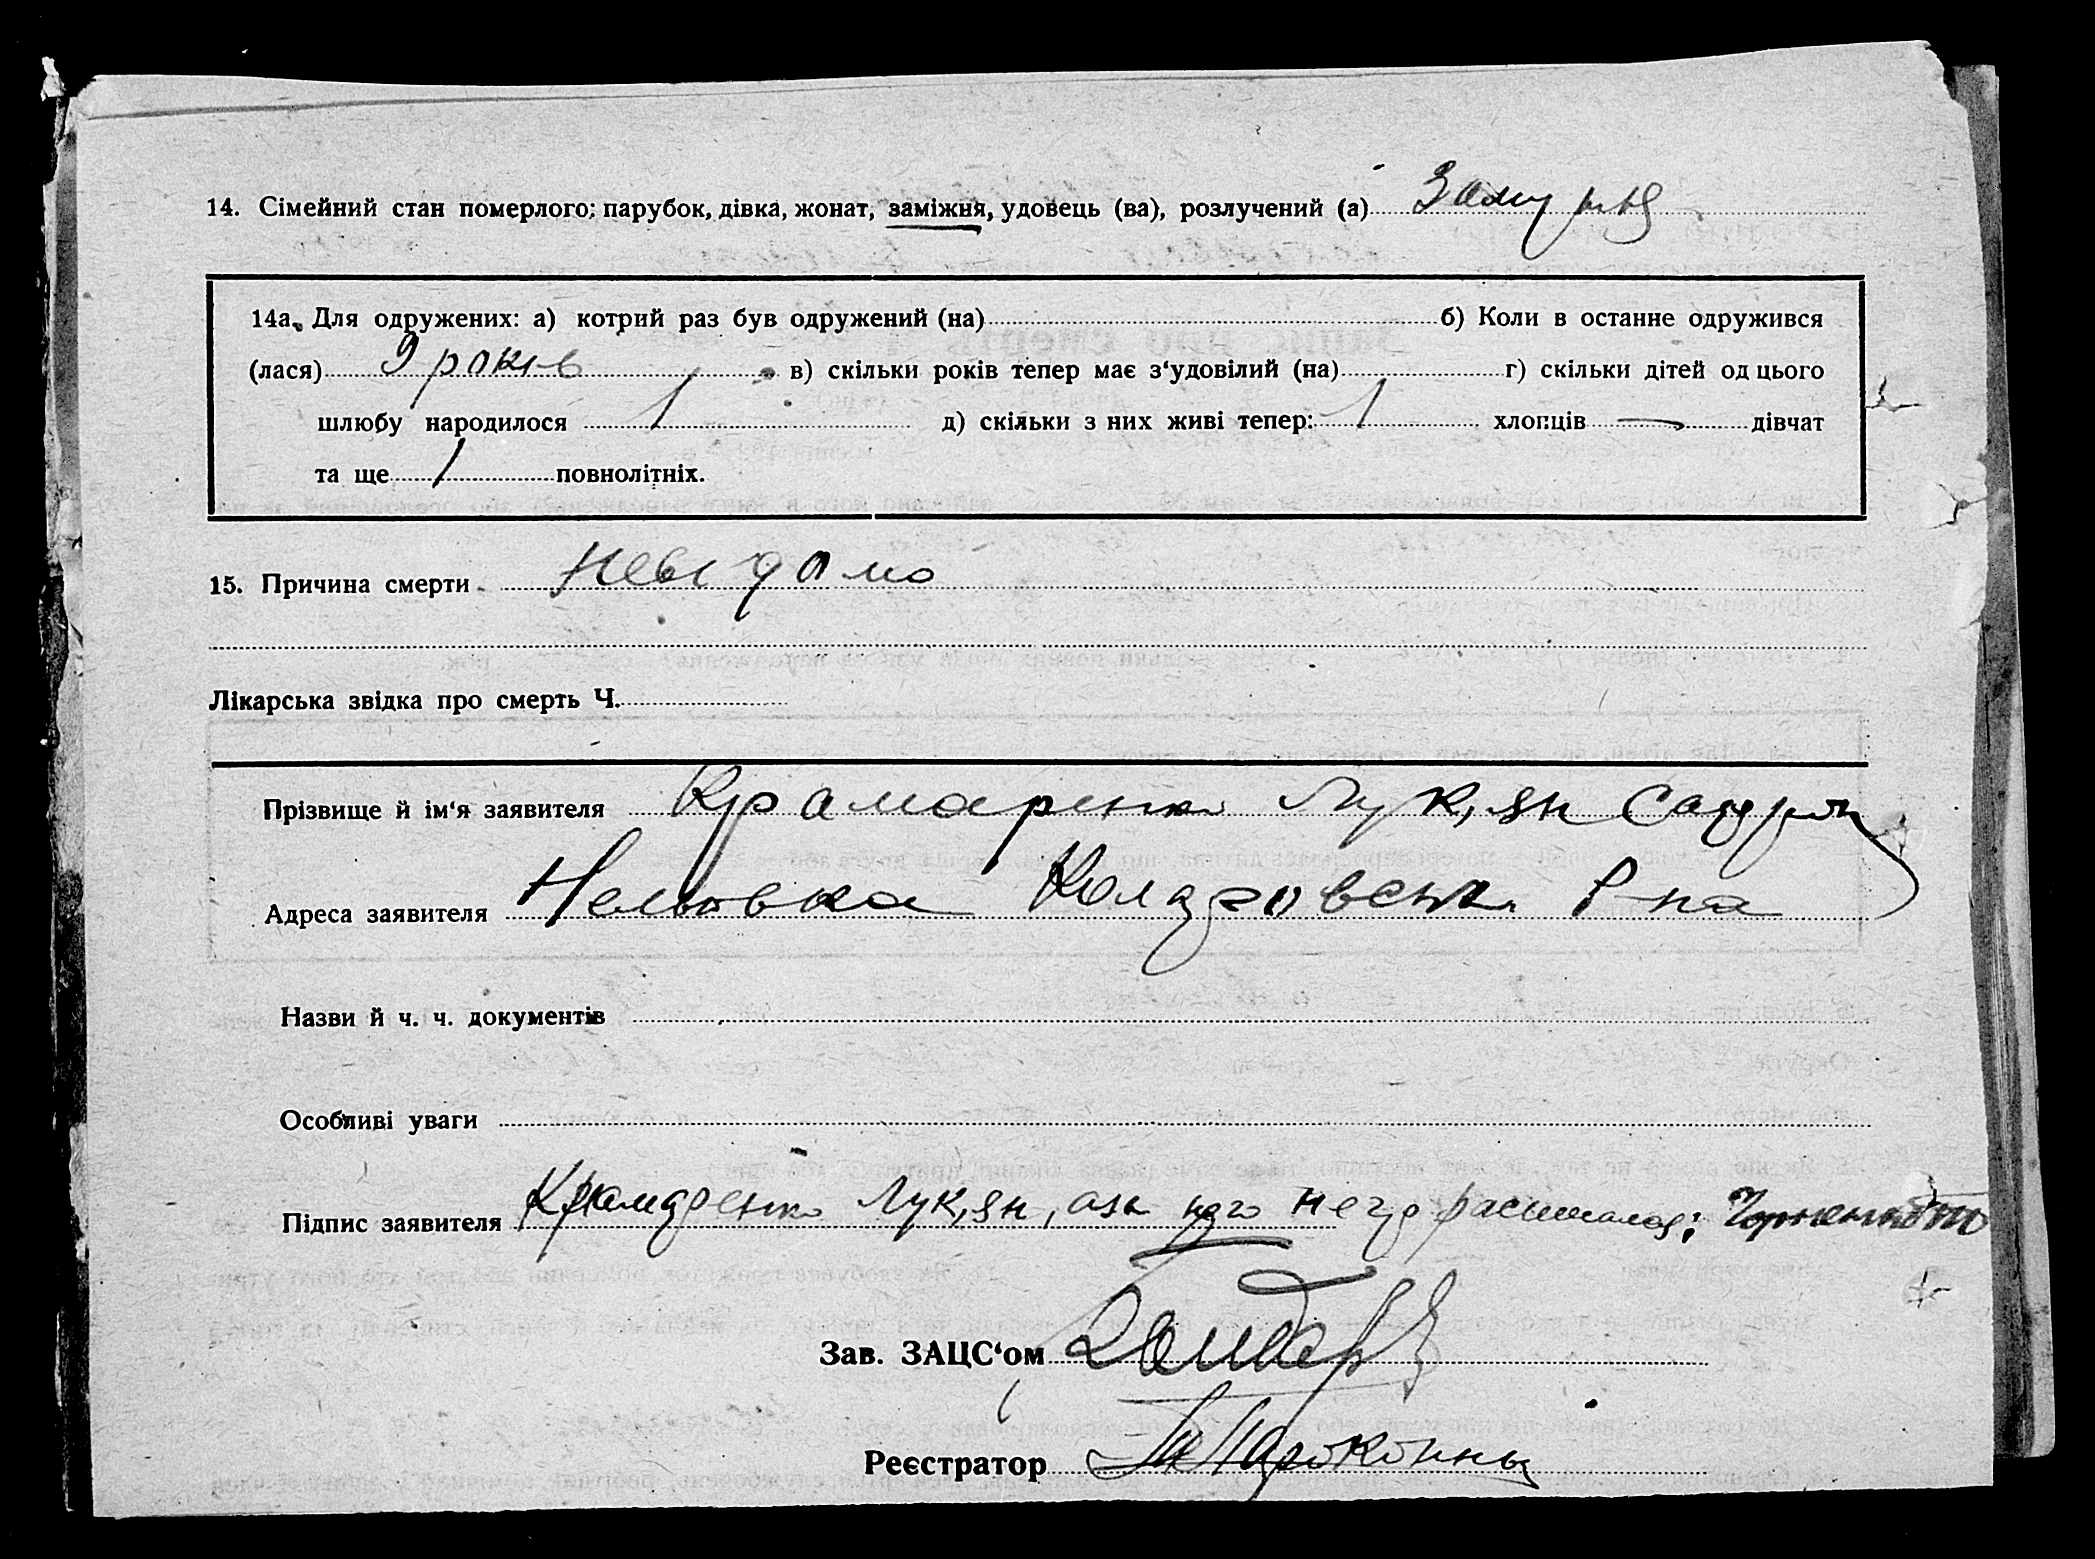 14. Сімейний стан померлого; парубок, дівка, жонат, заміжня, удовець (ва), розлучений (а)
14а. Для одружених: а) котрий раз був одружений (на) б) Коли в останне одружився
(лася) 9 років в) скільки років тепер має з‘удовілий (на) г) скільки дітей од цього
шлюбу народилося 1 д) скільки з них живі тепер: 1 хлопців — дівчат
та ще 1 повнолітніх.
15. Причина смерти Невідомо
Лікарська звідка про смерть Ч.
Прізвище й ім‘я заявителя Крамаренко Лук,ян
Адреса заявителя р-на
Назви й ч. ч. документів
Особливі уваги
Підпис заявителя Крамаренко Лук,ян, а за його
Зав. ЗАЦС‘ом
Реєстратор